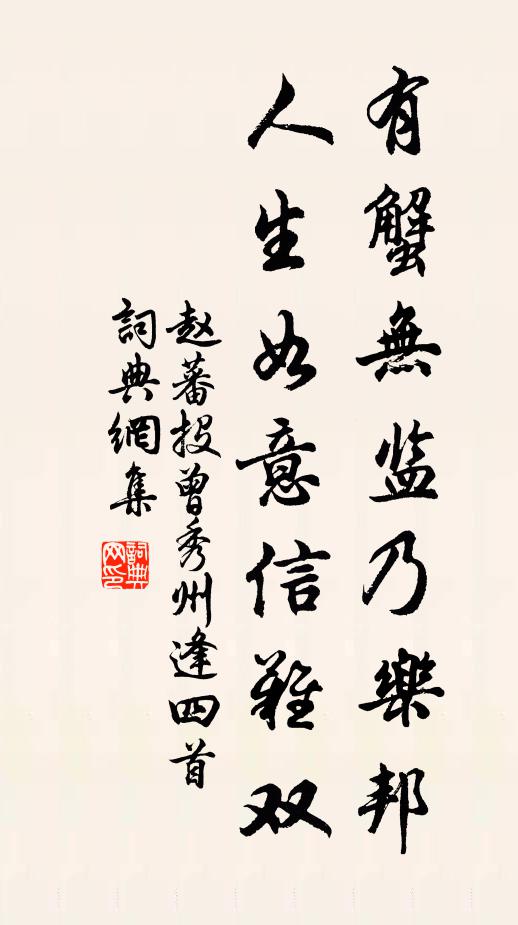 有蟹無监乃樂邦
人生如意信難双
赵蕃投曾秀州逢四首
詞典網集
詞典网印